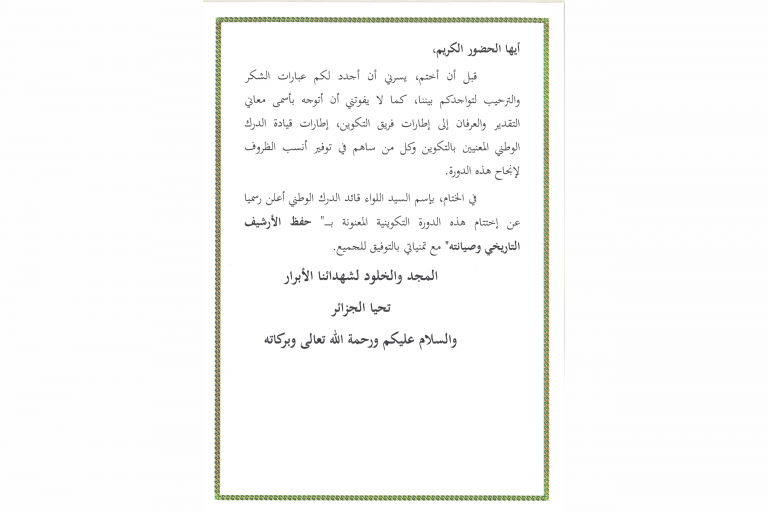 أيها الحضور الكريم،
قبل أن أختم، يسرني أن أجدد لكم عبارات الشكر
والترحيب لتواجدكم بيننا، كما لا يفوتني أن أتوجه بأسمى معاني
التقدير والعرفان إلى إطارات فريق التكوين، إطارات قيادة الدرك
الوطني المعنيين بالتكوين وكل من ساهم في توفير أنسب الظروف
لإنجاح هذه الدورة.
في الختام، بإسم السيد اللواء قائد الدرك الوطني أعلن رسميا
عن إختتام هذه الدورة التكوينية المعنونة بـ" حفظ الأرشيف
التاريخي وصيانته" مع تمنياتي بالتوفيق للجميع.
المجد والخلود لشهدائنا الأبرار
تحيا الجزائر
والسلام عليكم ورحمة الله تعالى وبركاته